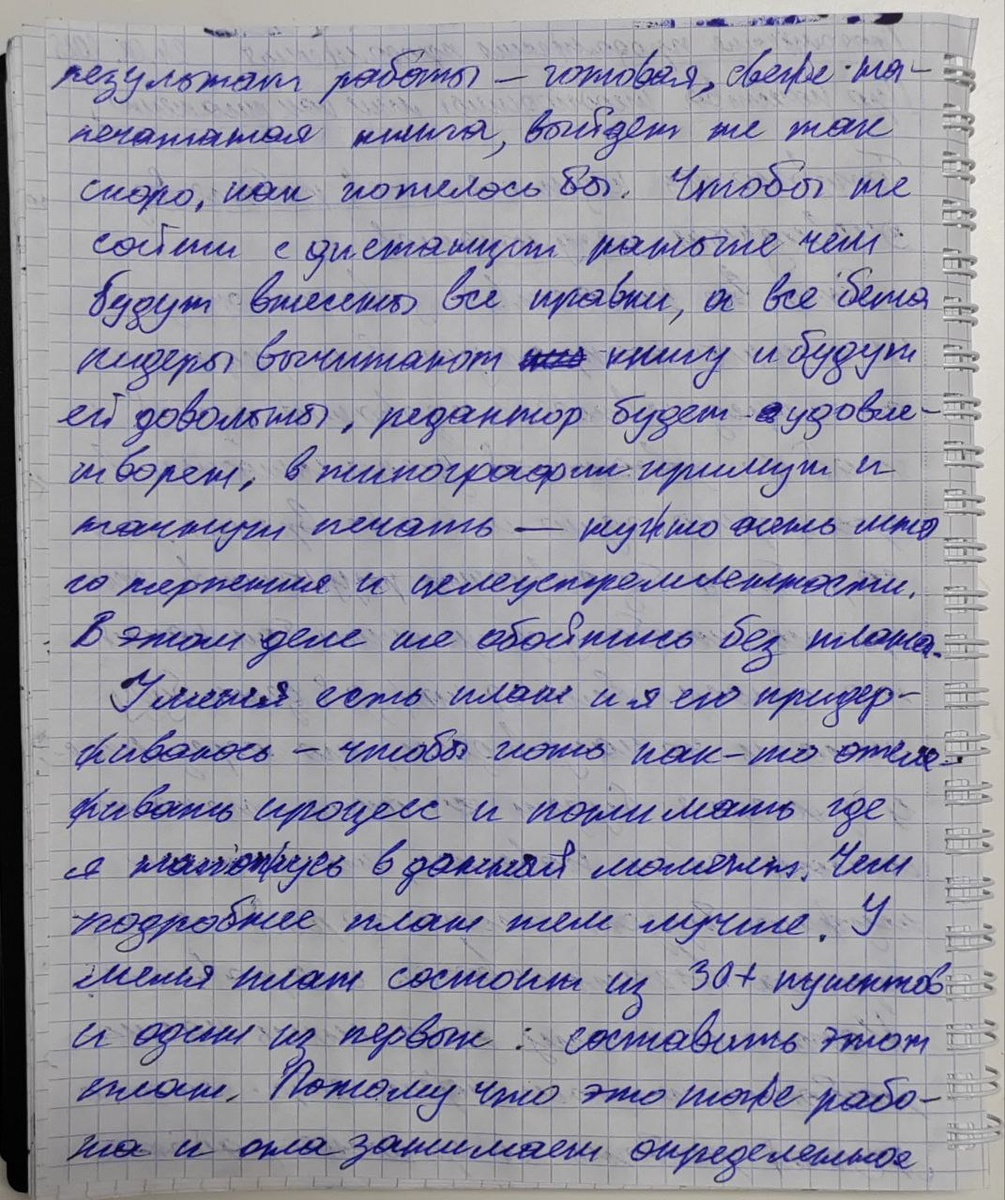 результат работы – готовая, свеже на-
печатаная книга, выйдет не так
скоро, как хотелось бы. Чтобы не
сойти с дистанции раньше чем
будут внесены все правки, а все бета
ридеры вычитают книгу и будут
ей довольны, редактор будет удовле-
творен, в типографии примут и
начнут печать — нужно иметь мно
го терпения и целеустремленности.
В этом деле не обойтись без плана.
У меня есть план и я его придер-
живаюсь – чтобы хоть как-то отсле-
живать процесс и понимать где
я нахожусь в данный момент. Чем
подробнее план тем лучше. У
меня план состоит из 30+ пунктов
и один из первых: составить этот
план. Потому что это тоже рабо-
та и она занимает определенное